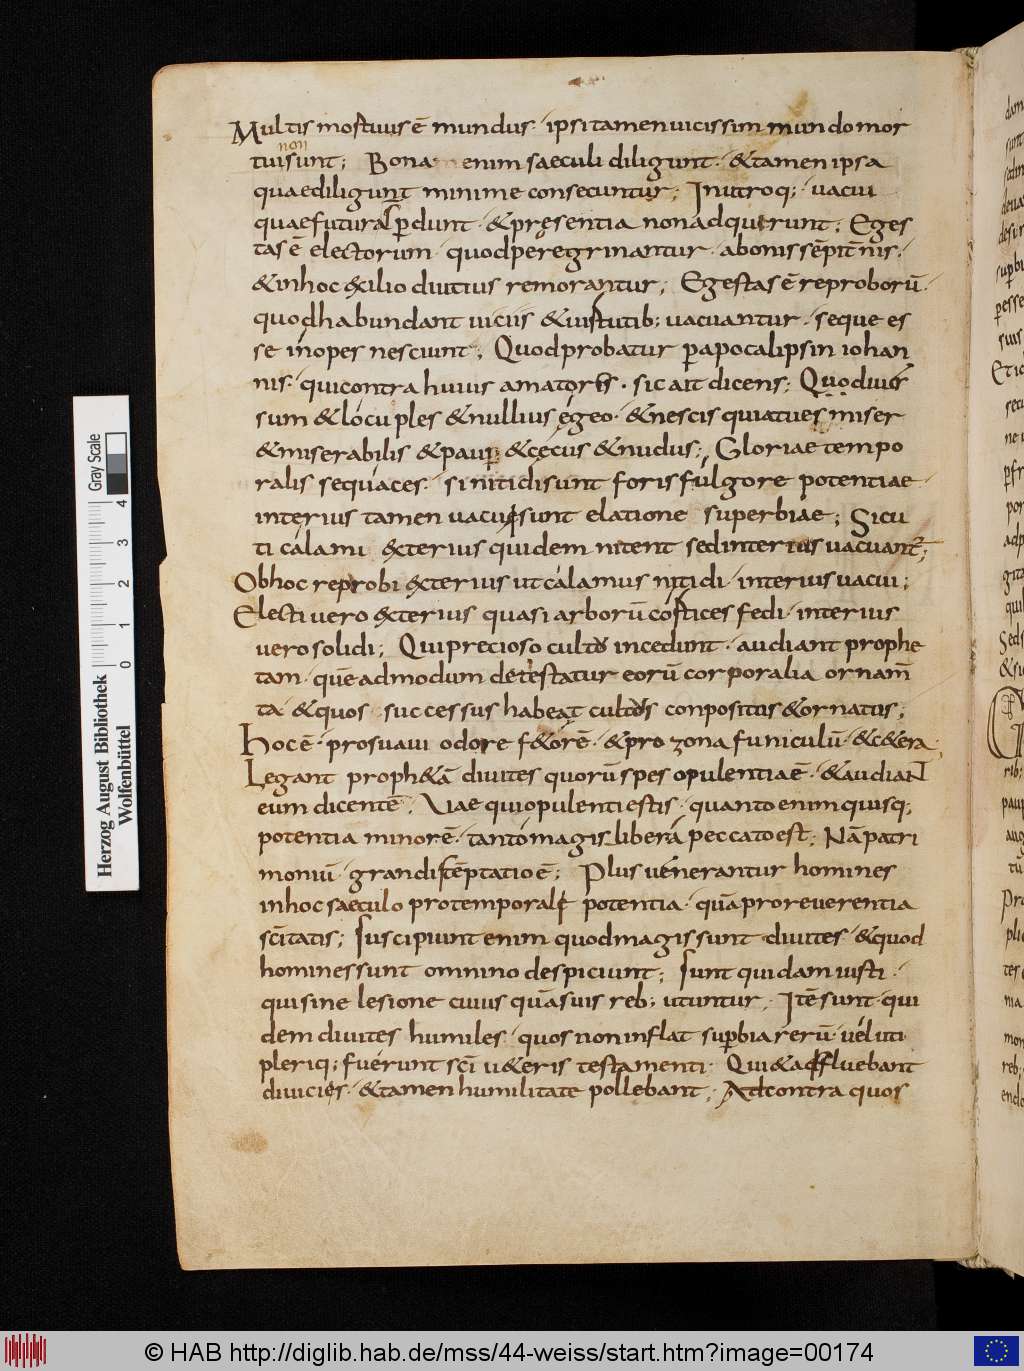 Multis mortuus ē mundus · ipsi tamen uicissim mundo mor
non
tui sunt; Bona enim saeculi diligunt · & tamen ipsa
quae diligunt minime consecuntur; In utroq; · uacui
quae futura perdunt · & pręsentia non adquirunt; Eges
tas ē electorum · quod peregrinantur · a bonis sēpit̄nis ·
& in hoc exilio diutius remorantur; Egestas ē reproborū ·
quod habundant uiciis & uirtutib; uacuantur · seque es
se inopes nesciunt; Quod probatur per apocalipsin iohan
nis · qui contra huius amatores · sic ait dicens; Quo diues
sum & locuples & nullius egeo · & nescis quia tu es miser
& miserabilis & pauper & cęcus & nudus; Gloriae tempo
ralis sequaces · si nitidi sunt foris fulgore potentiae
interius tamen uacui sunt elatione superbiae; Sicu
ti calami exterius quidem nitent sed interius uacuant̄;
Ob hoc reprobi exterius ut calamus nitidi · interius uacui;
Electi uero exterius quasi arborū cortices fedi · interius
uero solidi; Qui precioso cultu incedunt · audiant prophe
tam · quēadmodum detestatur eorū corporalia ornam̄
ta & quos successus habeat cultus conpositus & ornatus;
Hoc ē · pro suaui odore f&orē · & pro zona funiculū · & c&era ·
Legant proph&ā diuites quorū spes opulentia ē · & audiant
eum dicentē · Uae qui opulenti estis · quanto enim quisq;
potentia minor ē · tanto magis liber a peccato est; Nā patri
moniū · grandis tēptatio ē; Plus uenerantur homines
in hoc saeculo pro temporali potentia · quā pro reuerentia
sc̄itatis; Suscipiunt enim quod magis sunt diuites · & quod
homines sunt omnino despiciunt; Sunt quidam iusti ·
qui sine lesione cuiusquā suis reb; utuntur · Itē sunt · qui
dem diuites humiles · quos non inflat superbia rerū · uel uti
pleriq; fuerunt sc̄i u&eris testamenti · Qui & affluebant
diuicies · & tamen humilitate pollebant; Ad contra quos
Gray Scale
4
3
2
1
0
Herzog August Bibliothek
Wolfenbüttel
© HAB http://diglib.hab.de/mss/44-weiss/start.htm?image=00174